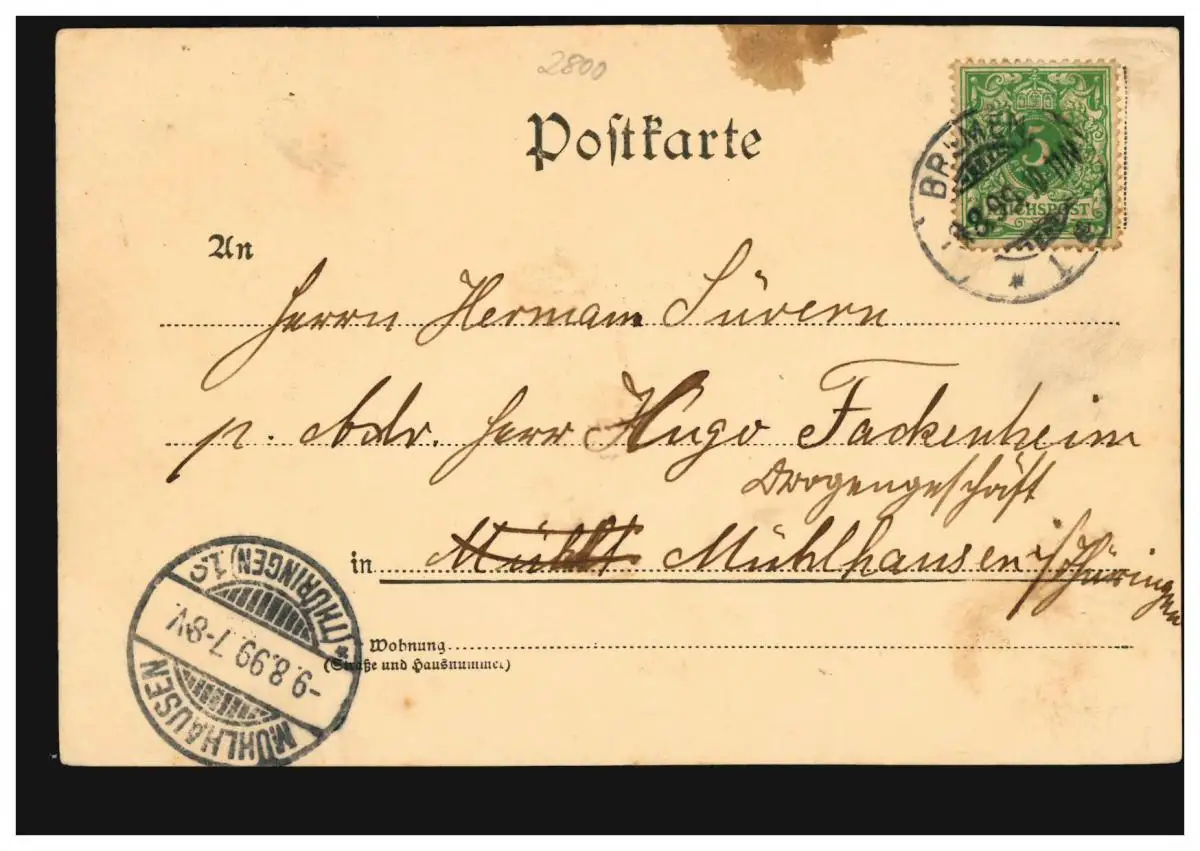 2800
Postkarte
5
REICHSPOST
BREMEN
8.8.99. 10-11N
* 1
An
Herrn Hermann Süvern
p. Adr. Herr Hugo Fackenheim
Drogengeschäft
in Mühlhausen i/Thüringen
Wohnung
(Straße und Hausnummer)
MÜHLHAUSEN
-9.8.99.7-8V.
*(THÜRINGEN)1.